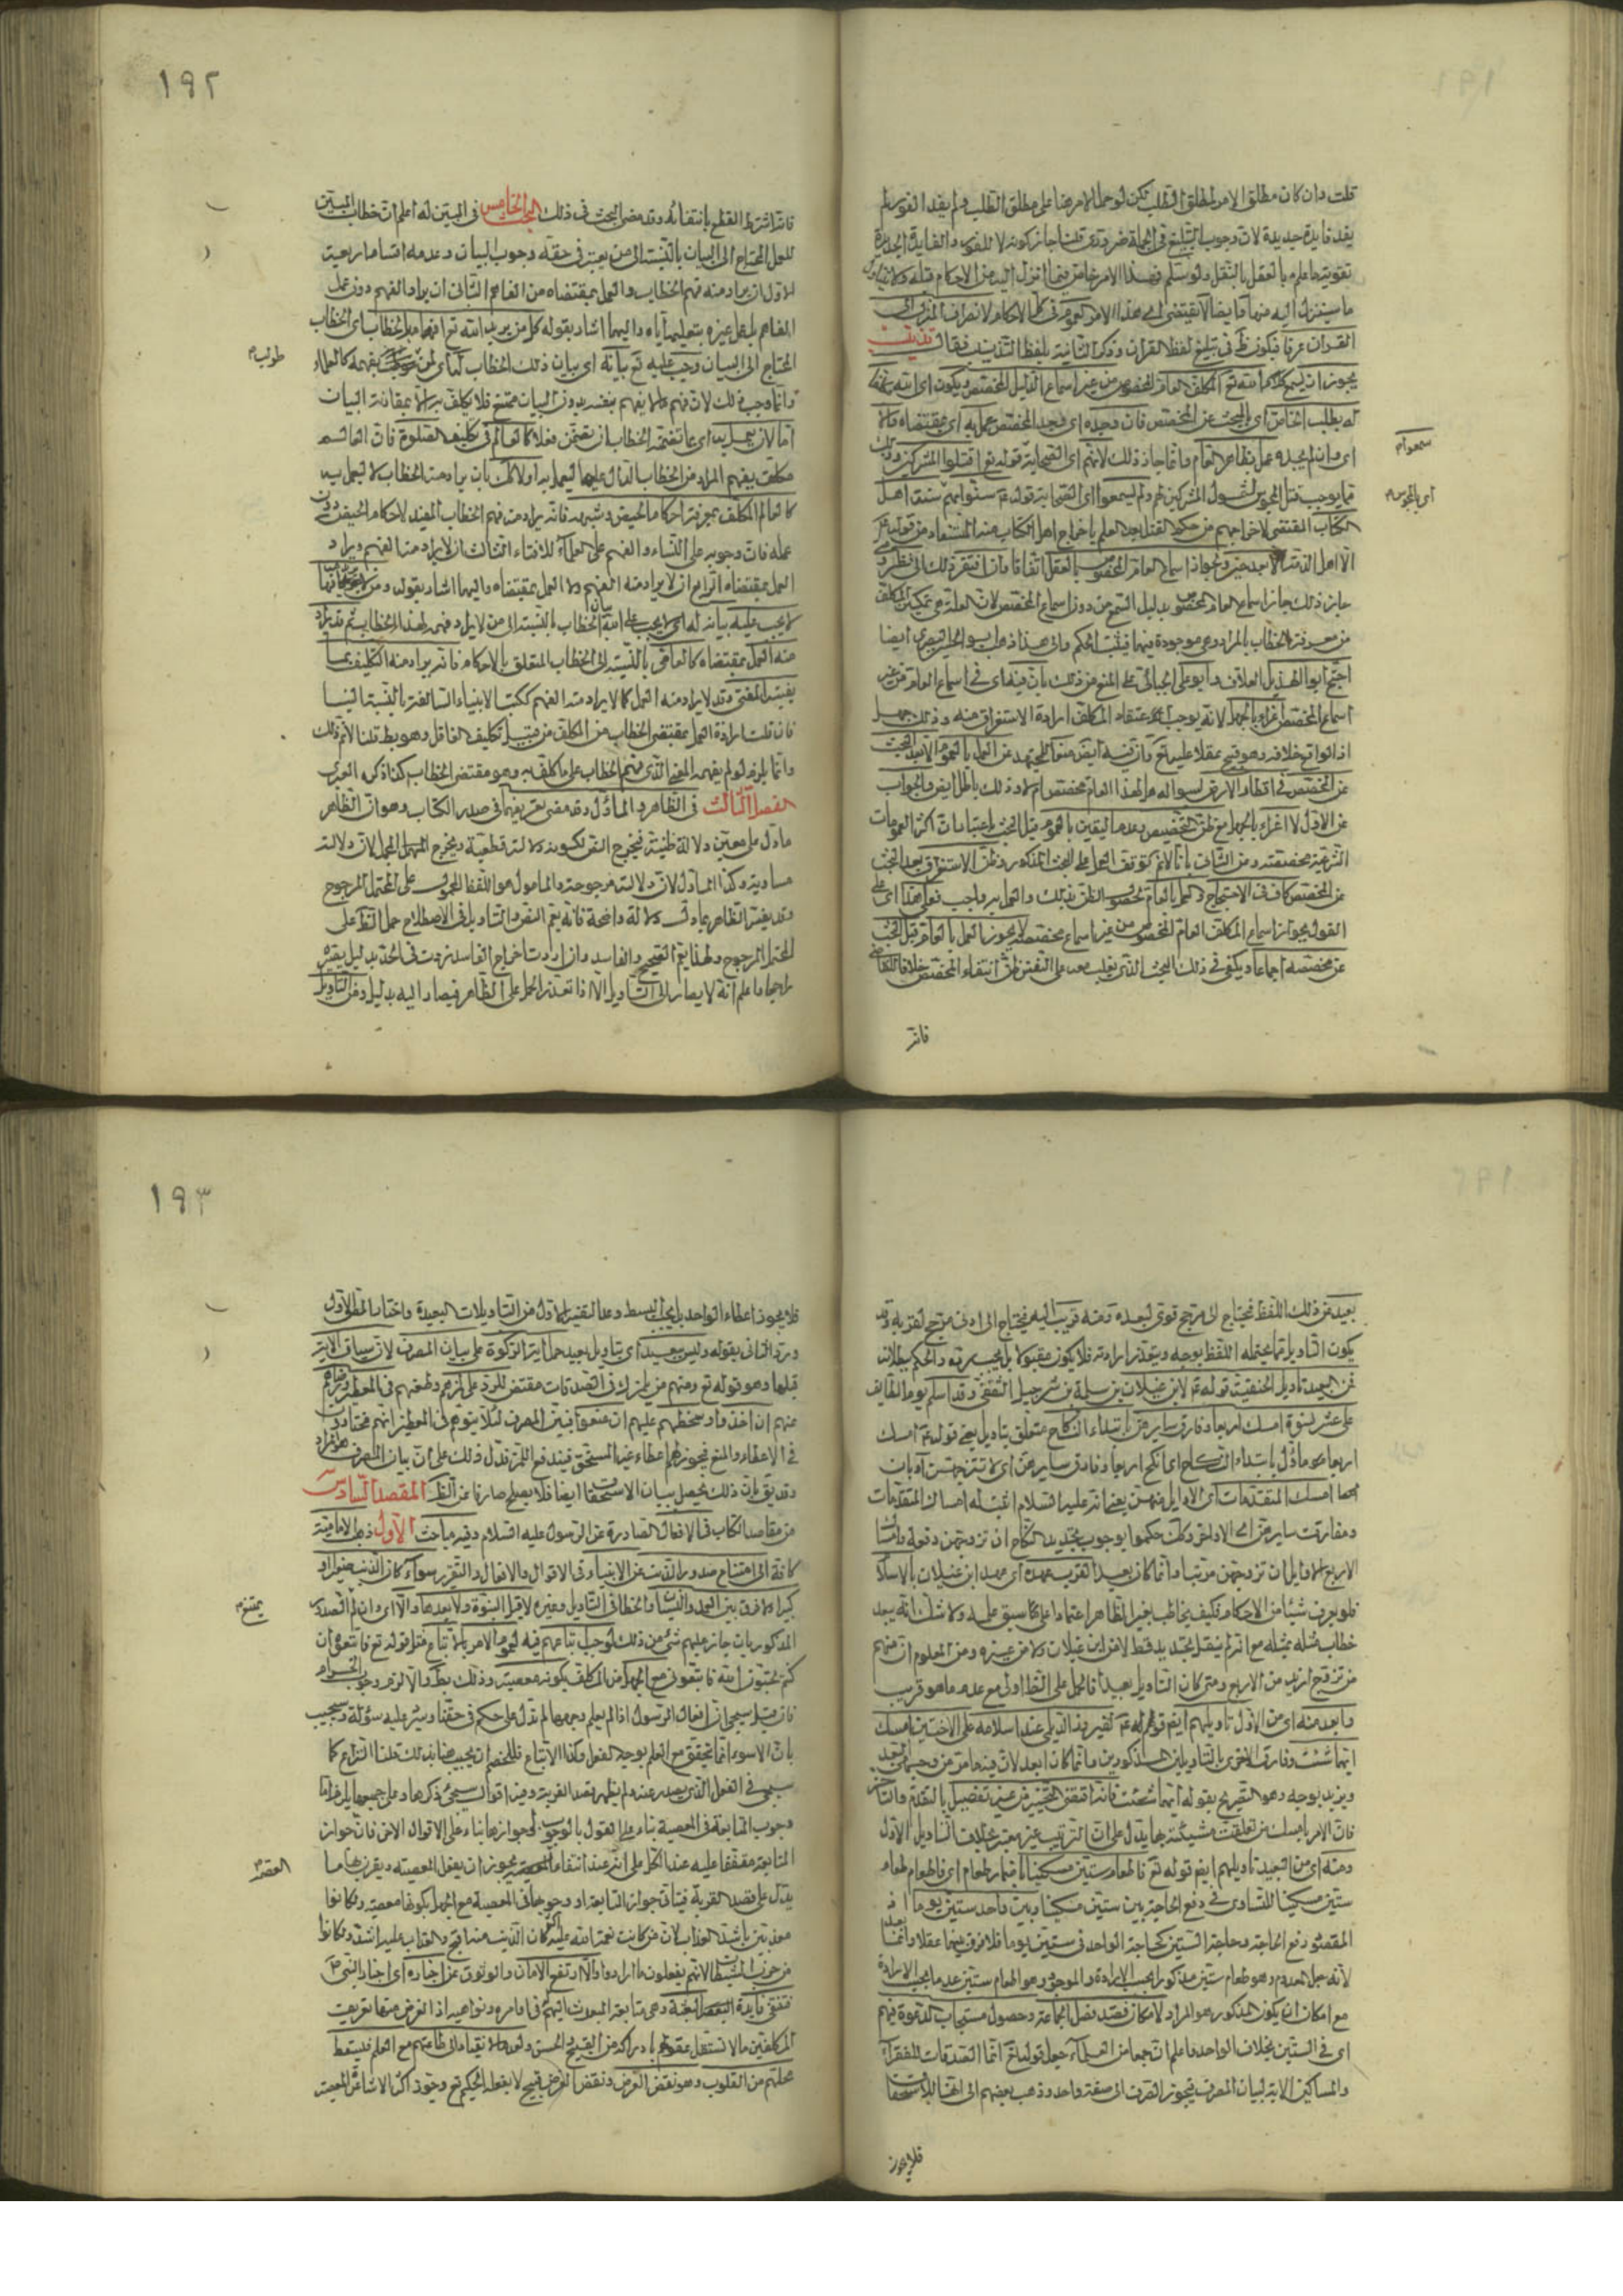 قلت وان كان مطلق الامر لمطلق الطلب لكن لو حمل الامر هنا على مطلق الطلب ولم يفد الفور لم
يفد فايدة جديدة لان وجوب التبليغ في الجملة ضروري قلنا جاز كونه لا للفور والفايدة الجديدة
تقوية ما علم بالعقل بالنقل ولو سلم فهذا الامر خاص فيما انزل اليه من الاحكام قبله ولا يتناول
ما سينزل اليه منها وايضا لا يقتضى هذا الامر العموم في كل الاحكام لانصراف المنزل الى
القران عرفا فيكون ظ في تبليغ لفظ القران وذكر الثانية بلفظ التذنيب فقال تذنيب
يجوز ان يسمع الله تع المكلف العام المخصوص من غير اسماع الدليل المخصص ويكون اى الله
له بطلب الخاص اى بالبحث عن المخصص فان وجده اى وجد المخصص عمل به اى بمقتضاه والا
اى وان لم يجده عمل بظاهر العام وانما جاز ذلك لانهم اى الصحابة قوله تع اقتلوا المشركين
مما يوجب قتل المجوس لشمول المشركين لهم ولم يسمعوا اى الصحابة قوله ع سنوا بهم سنة اهل
الكتاب المقتضى لاخراجهم من حكم القتل بعد العلم باخراج اهل الكتاب منه المستفاد من قوله
الا اهل الذمة الا بعد حين وتجوز اسماع العام المخصوص بالعقل اتفاقا وان افتقر ذلك الى نظر
جاز ذلك جاز اسماع العام المخصوص بدليل السمع من دون اسماع المخصص لان العلة هى تمكين المكلف
من معرفة الخطاب بالمراد وهى موجودة فيهما فيثبت الحكم والى هذا ذهب ابو الحسين البصرى ايضا
احتج ابو الهذيل العلاف وابو على الجبائى على المنع من ذلك بان فيه اى في اسماع العام من غير
اسماع المخصص اغراء بالجهل لانه يوجب اعتقاد المكلف ارادة الاستغراق منه وذلك جهل
اذ الواقع خلافه وهو قبيح عقلا عليه تع وان فيه ايض منعا للمجتهد عن العمل بالعموم الا بعد البحث
عن المخصص في اقطار الارض لسؤاله هل لهذا العام مخصص ام لا وذلك باطل ايض والجواب
عن الاول لا اغراء بالجهل مع ظن التخصيص بعد ما اليقين بالعموم قبل البحث باعتبار ان اكثر العمومات
الشرعية مخصصة وعن الثانى بانا لانم توقف العمل على البحث المذكور وظن الاستغراق بعد البحث
عن المخصص كاف في الاحتجاج والعمل بالعام لحصول الظن بذلك والعمل به واجب فعلى هذا اى على
القول بجواز اسماع المكلف العام المخصوص من غير اسماع مخصصه لا يجوز العمل بالعام قبل البحث
عن مخصصه اجماعا ويكفى في ذلك البحث الذى يغلب معه على النفس ظن انتفاء المخصص خلافا للقاضى
فانه
سمعوا م
اى بالمجوس م
١٩٢
فانه اشترط القطع بانتفائه وقد مضى البحث في ذلك البحث الخامس في المبين له اعلم ان خطاب المبين
للعمل المحتاج الى البيان بالنسبة الى من يعتبر في حقه وجوب البيان وعدمه اقسام اربعة
الاول ان يراد منه فهم الخطاب والعمل بمقتضاه من الفاهم الثانى ان يراد الفهم دون عمل
الفاهم بل عمل غيره بتعليمه اياه واليهما اشار بقوله كل من يريد الله تع افهامه بالخطاب اى الخطاب
المحتاج الى البيان وجب عليه تع بيانه اى بيان ذلك الخطاب له
وانما وجب ذلك لان فهم ما لا يفهم بنفسه بدون البيان ممتنع فلا يكلف به الا بمقارنة البيان
اما لان يعمل به اى بما تضمنه الخطاب ان تضمن فعلا كالعالم في تكليف الصلوة فان العالم
مكلف بفهم المراد من الخطاب الدال عليها ليعمل به اولا كك بان يراد منه الخطاب لا ليعمل به
كالعالم المكلف بمعرفة احكام الحيض وشبهه فانه يراد منه فهم الخطاب المفيد لاحكام الحيض دون
عمله فان وجوبه على النساء والفهم على العلماء للافتاء الثالث ان لا يراد منه الفهم ويراد
العمل بمقتضاه الرابع ان لا يراد منه الفهم ولا العمل بمقتضاه واليهما اشار بقوله ومن لا
لا يجب عليه بيانه له اى لا يجب على الله بيان الخطاب بالنسبة الى من لا يريد فهمه لهذا الخطاب ثم قد يراد
منه العمل بمقتضاه كالعامى بالنسبة الى الخطاب المتعلق بالاحكام فانه يراد منه التكليف بما
يفتيه المفتى وقد لا يراد منه العمل كما لا يراد منه الفهم ككتب الانبياء السالفة بالنسبة الينا
فان قلت ارادة العمل بمقتضى الخطاب من المكلف من قبيل تكليف الغافل وهو بط قلنا لانم ذلك
وانما يلزم لو لم يفهمه المفتى الذى فهم الخطاب على ما كلف به وهو مقتضى الخطاب كذا ذكره العبرى
الفصل الثالث في الظاهر والمأول وقد مضى تعريفهما في صدر الكتاب وهو ان الظاهر
ما دل على معنى دلالة ظنية فيخرج النص لكونه دلالته قطعية ويخرج المجمل لان دلالته
مساوية وكذا المأول لان دلالته مرجوحة والمأول هو اللفظ المحمول على المحتمل المرجوح
وقد يفسر الظاهر بما دل دلالة واضحة فانه يعم النص والتاويل في الاصطلاح حمل الظ على
المحتمل المرجوح ولهذا يعم الصحيح والفاسد وان اردت اخراج الفاسد زدت في الحد بدليل يصيره
راجحا واعلم انه لا يصار الى التاويل الا اذا تعذر الحمل على الظاهر فيصار اليه بدليل ومن التاويل
بعيد عن ذلك اللفظ فيحتاج الى مرجح قوى لبعده ومنه قريب اليه فيحتاج الى ادنى مرجح لقربه وقد
يكون التاويل مما يحتمله اللفظ بوجه ويتعذر ارادته فلا يكون مقبولا بل يجب رده والحكم ببطلانه
فمن البعيد تاويل الحنفية قوله ع لابن غيلان بن سلمة بن شرحبيل الثقفى وقد اسلم يوم الطايف
على عشر نسوة امسك اربعا وفارق سايرهن بابتداء النكاح متعلق بتاويل يعنى قوله ع امسك
اربعا هو ماول بابتداء النكاح اى انكح اربعا وفارق سايرهن اى لا تتزوجهن او بان
امسك المتقدمات اى الاوايل منهن يعنى انه عليه السلام اثبت له امساك المتقدمات
ومفارقت سايرهن اى الاواخر وكك حكموا بوجوب تجديد النكاح ان تزوجهن دفعة وامساك
الاربع الاوايل ان تزوجهن مرتبا وانما كان بعيدا لقرب عهده اى عهد ابن غيلان بالاسلام
فلو يعرف شيئا من الاحكام فكيف يخاطب بغير الظاهر اعتمادا على ما سبق عليه ولا شك انه يبعد
خطاب مثله بمثله مع انه لم ينقل تجديد قط لا من ابن غيلان ولا من غيره ومن المعلوم ان منهم
من تزوج ازيد من الاربع ومتى كان التاويل بعيدا فالحمل على الظ اولى مع عدم ما هو قريب
وابعد منه اى من الاول تاويلهم ايض قوله ع لفيروز الديلى عند اسلامه على الاختين امسك
ايتهما شئت وفارق الاخرى بالتاويلين المذكورين وانما كان ابعد لان فيه ما مر من وجهى البعد
ويزيد بوجه وهو التصريح بقوله ايتهما شئت فانه اقتضى التخيير من غير تفصيل بالتقدم والتاخر
فان الامر بامساك من تعلقت مشيئته بها يدل على ان الترتيب غير معتبر بخلاف التاويل الاول
ومنه اى من البعيد تاويلهم ايض قوله تع فاطعام ستين مسكينا باضمار طعام اى فاطعام طعام
ستين مسكينا للتساوى في دفع الحاجة بين ستين مسكينا وبين واحد ستين يوما اذ
المقصود دفع الحاجة وحاجة الستين كحاجة الواحد في ستين يوما فلا فرق بينهما عقلا وانما
لانه جعل المعدوم وهو طعام ستين مذكورا بحسب الارادة والموجود وهو اطعام ستين عدما بحسب الارادة
مع امكان ان يكون المذكور هو المراد لامكان قصد فضل الجماعة وحصول مستجاب الدعوة فيهم
اى في الستين بخلاف الواحد واعلم ان جمعا من العلماء جعل قوله تع انما الصدقات للفقراء
والمساكين الاية لبيان المصرف فيجوز الصرف الى صنف واحد وذهب بعضهم الى انها للاستحقاق
فلا يجوز
١٩٣
فلا يجوز اعطاء الواحد بل يجب البسط وعد التفسير الاول من التاويلات البعيدة واختار المص الاول
ورد الثانى بقوله وليس ببعيد اى بتاويل بعيد حمل اية الزكوة على بيان المصرف لان سياق الاية
قبلها وهو قوله تع ومنهم من يلمزك في الصدقات مقتض للرد على لمزهم وطعنهم في المعطى ورضاهم
عنهم ان اخذوا وسخطهم عليهم ان منعوا فبين المصرف لئلا يتوهم في المعطين انهم مختارون
في الاعطاء والمنع فيجوز لهم اعطاء غير المستحق فيندفع اللمز فدل ذلك على ان بيان المصرف هو المراد
وقد يق بان ذلك يحصل ببيان الاستحقاق ايضا فلا يصلح صارفا عن الظ المقصد السادس
من مقاصد الكتاب في الافعال الصادرة عن الرسول عليه السلام وفيه مباحث الاول ذهب الامامية
كافة الى امتناع صدور الذنب عن الانبياء في الاقوال والافعال والتقرير سواء كان الذنب صغيرا او
كبيرا ولا فرق بين العمد والنسيان والخطا في التاويل وغيره لا قبل النبوة ولا بعدها والا اى وان لم
المذكور بان جاز عليهم شئ من ذلك لوجب اتباعهم فيه لعموم الامر بالاتباع مثل قوله تع فاتبعوه ان
كنتم تحبون الله فاتبعونى مع الجهل من المكلف بكونه معصية وذلك بط والا لزم وجوب الحرام
فان قيل سيجئ ان افعال الرسول اذا لم يعلم وجهها لم تدل على حكم في حقنا وسيرد عليه سؤاله وسيجيب
بان الاسوة انما تتحقق مع العلم بوجه الفعل وكذا الاتباع فللخصم ان يجيب هنا بذلك قلنا النزاع كما
سيجئ في الفعل الذى يصدر عنه ولم يظهر قصد القربة وفيه اقوال سيجئ ذكرها وعلى جميعها يلزم اما
وجوب المتابعة في المعصية بناء على القول بالوجوب او جوازها بناء على الاقوال الاخر فان جواز
المتابعة متفقا عليه عند الكل على انه عند انتفاء العصمة يجوز ان يفعل المعصية ويقرن بها ما
يدل على قصد القربة فيتأتى جواز المتابعة او وجوبها في المعصية مع الجهل بكونها معصية ولكانوا
معذبين باشد العذاب لان من كانت نعمة الله عليه اكثر كان الذنب منه اقبح والعذاب عليه اشد ولكانوا
من حزب الشيطان لانهم يفعلون ما اراده والا ارتفع الامان والوثوق عن اخباره اى اخبار النبى ع
فتنتفى فايدة البعثة وهى متابعة المبعوث اليهم في اوامره ونواهيه اذ الغرض منها تعريف
المكلفين ما لا تستقل عقولهم بادراكه من القبيح والحسن ولعدم الانقياد الى طاعتهم مع العلم فيسقط
محلهم من القلوب وهو نقض الغرض ونقض الغرض قبيح لا يفعله الحكيم تع وجوز اكثر الاشاعرة المعصية
يمتنع م
العصمة